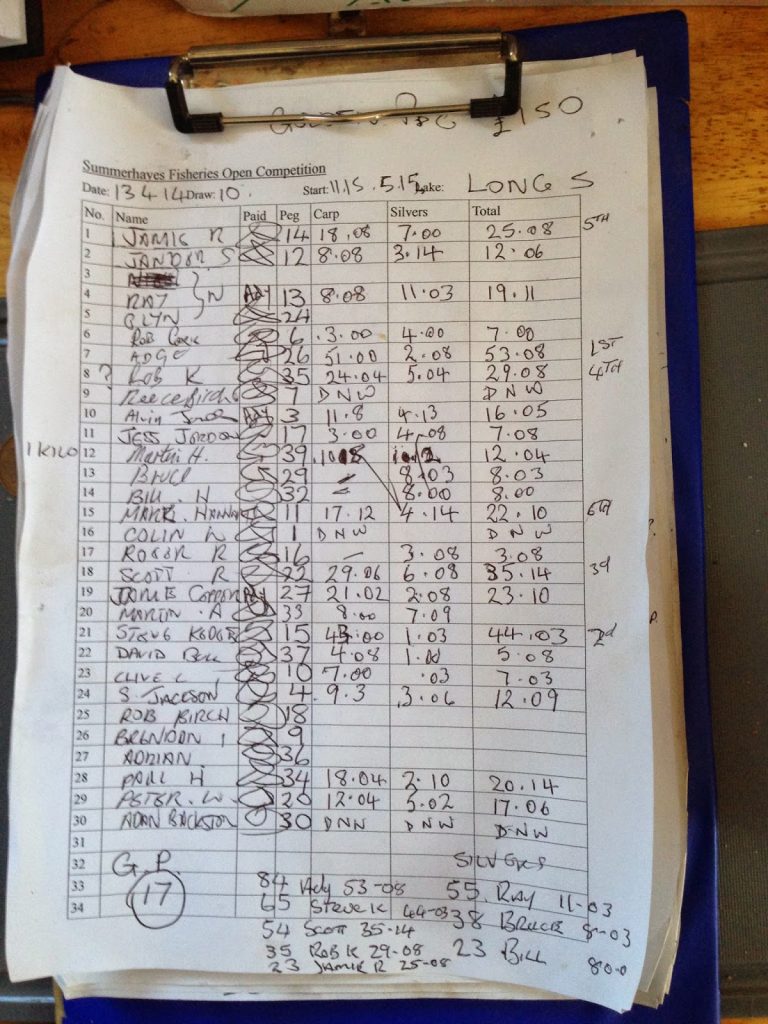 £150
Summerhayes Fisheries Open Competition
Date: 13 4 14 Draw: 10. Start: 11.15 . 5.15 Lake: LONG S
No. Name Paid Peg Carp Silvers Total
1 JAMIE R 14 18.08 7.00 25.08 5TH
2 JANDER S 12 8.08 3.14 12.06
3
4 RAY N 13 8.08 11.03 19.11
5 GLYN 24
6 ROB 6 .3.00 4.00 7.00
7 ADGE 26 51.00 2.08 53.08 1ST
8 ? ROB K 35 24.04 5.04 29.08 4TH
9 Reece Birch 7 DNW DNW
10 Alvin 3 11.8 4.13 16.05
11 JESS JORDON 17 3.00 4.08 7.08
1 KILO 12 Martin H. 39 12.04
13 BRUCE 29 - 8.03 8.03
14 BILL . H 32 - 8.00 8.00
15 MARK. HANNA 11 17.12 4.14 22.10 6TH
16 COLIN W 1 DNW DNW
17 ROGER R 16 - 3.08 3.08
18 SCOTT R 22 29.06 6.08 35.14 3d
19 JAMIE 27 21.02 2.08 23.10
20 MARTIN . A 33 8.00 7.09
21 STEVE 15 43.00 1.03 44.03 2d
22 DAVID BULL 37 4.08 1.00 5.08
23 CLIVE C 10 7.00 .03 7.03
24 S. JACKSON 4 9.3 3.06 12.09
25 ROB BIRCH 18
26 BRENDON 9
27 ADRIAN. 36
28 PAUL H 34 18.04 2.10 20.14
29 PETER . W. 20 12.04 5.02 17.06
30 30 DNW DNW DNW
31
32 G.P. SILVERS
33 17 84 Ady 53-08 55. RAY 11-03
34 65 STEVE K 44-03 38 BRUCE 8-03
54 SCOTT 35-14 23 BILL 8-0-0
35 ROB K 29-08
23 JAMIE R 25-08